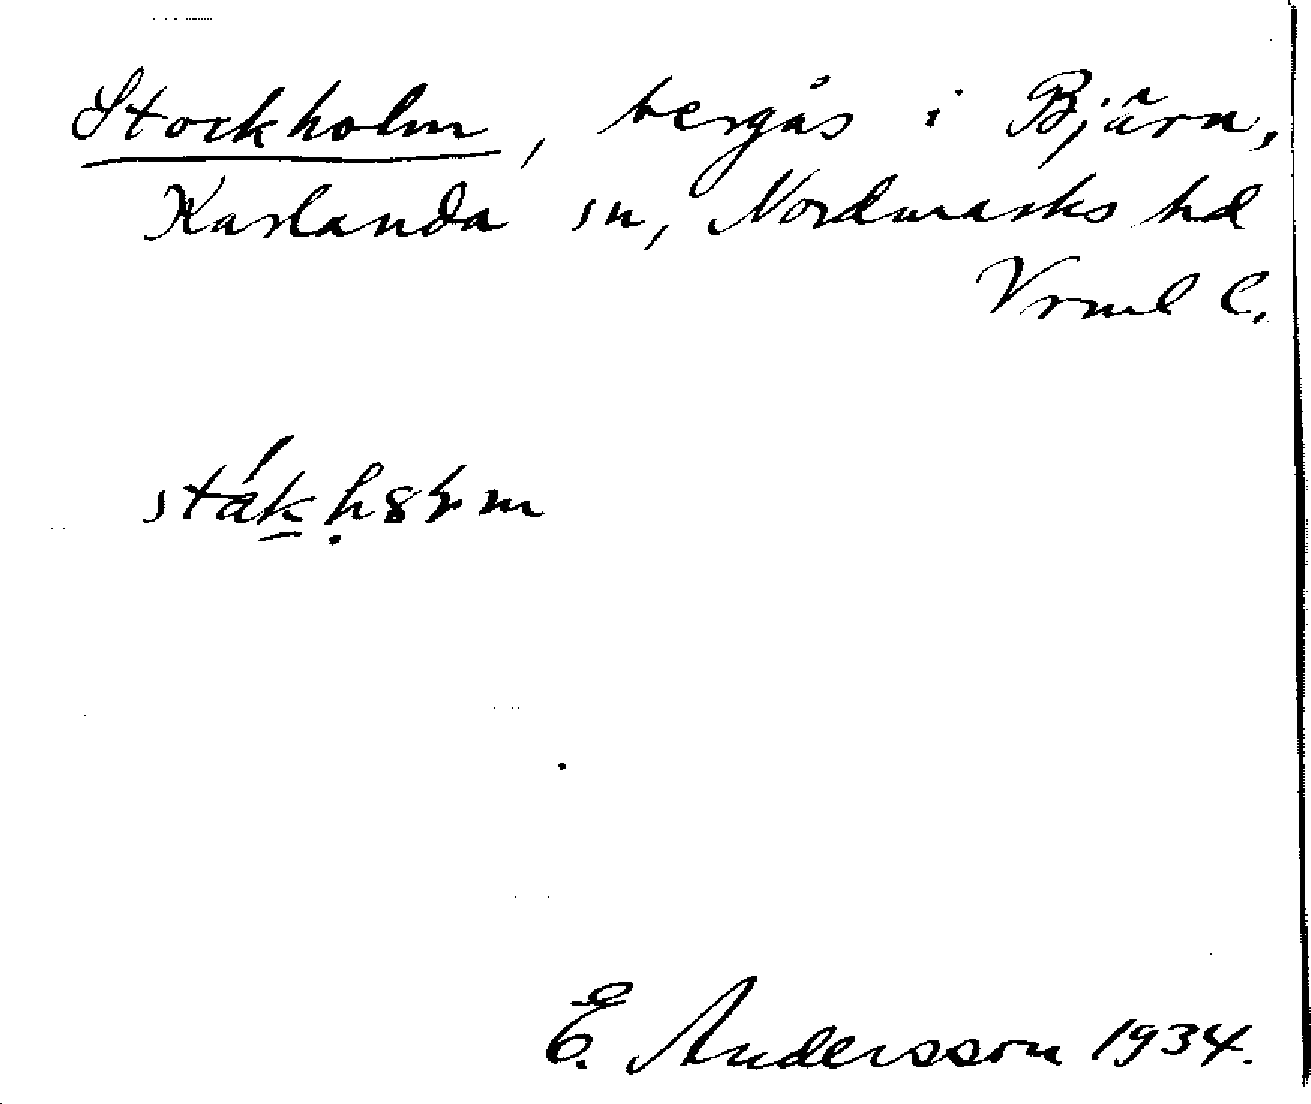 Stockholm, bergås i Bjärn,
Karlanda sn, Nordmarks hd
Vrml l.
E. Andersson 1934.